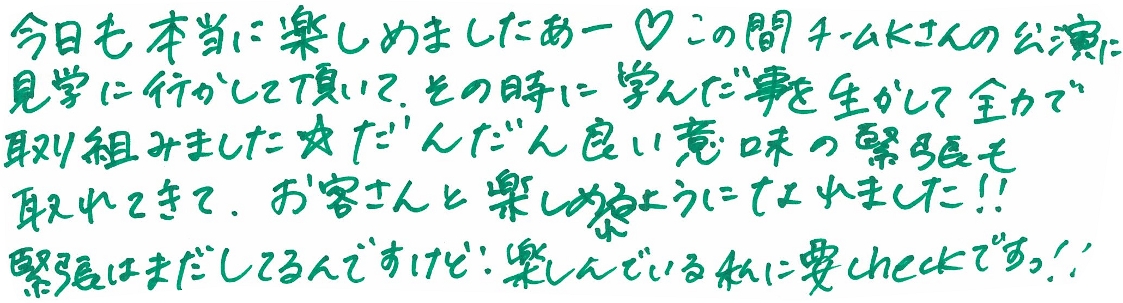 今日も本当に楽しめましたあー♡この間チームKさんの公演に
見学に行かして頂いて、その時に学んだ事を生かして全力で
取り組みました☆だんだん良い意味の緊張も
取れてきて、お客さんと楽しめるようになれました!!
緊張はまだしてるんですけど:楽しんでいる私に要checkですっ!!